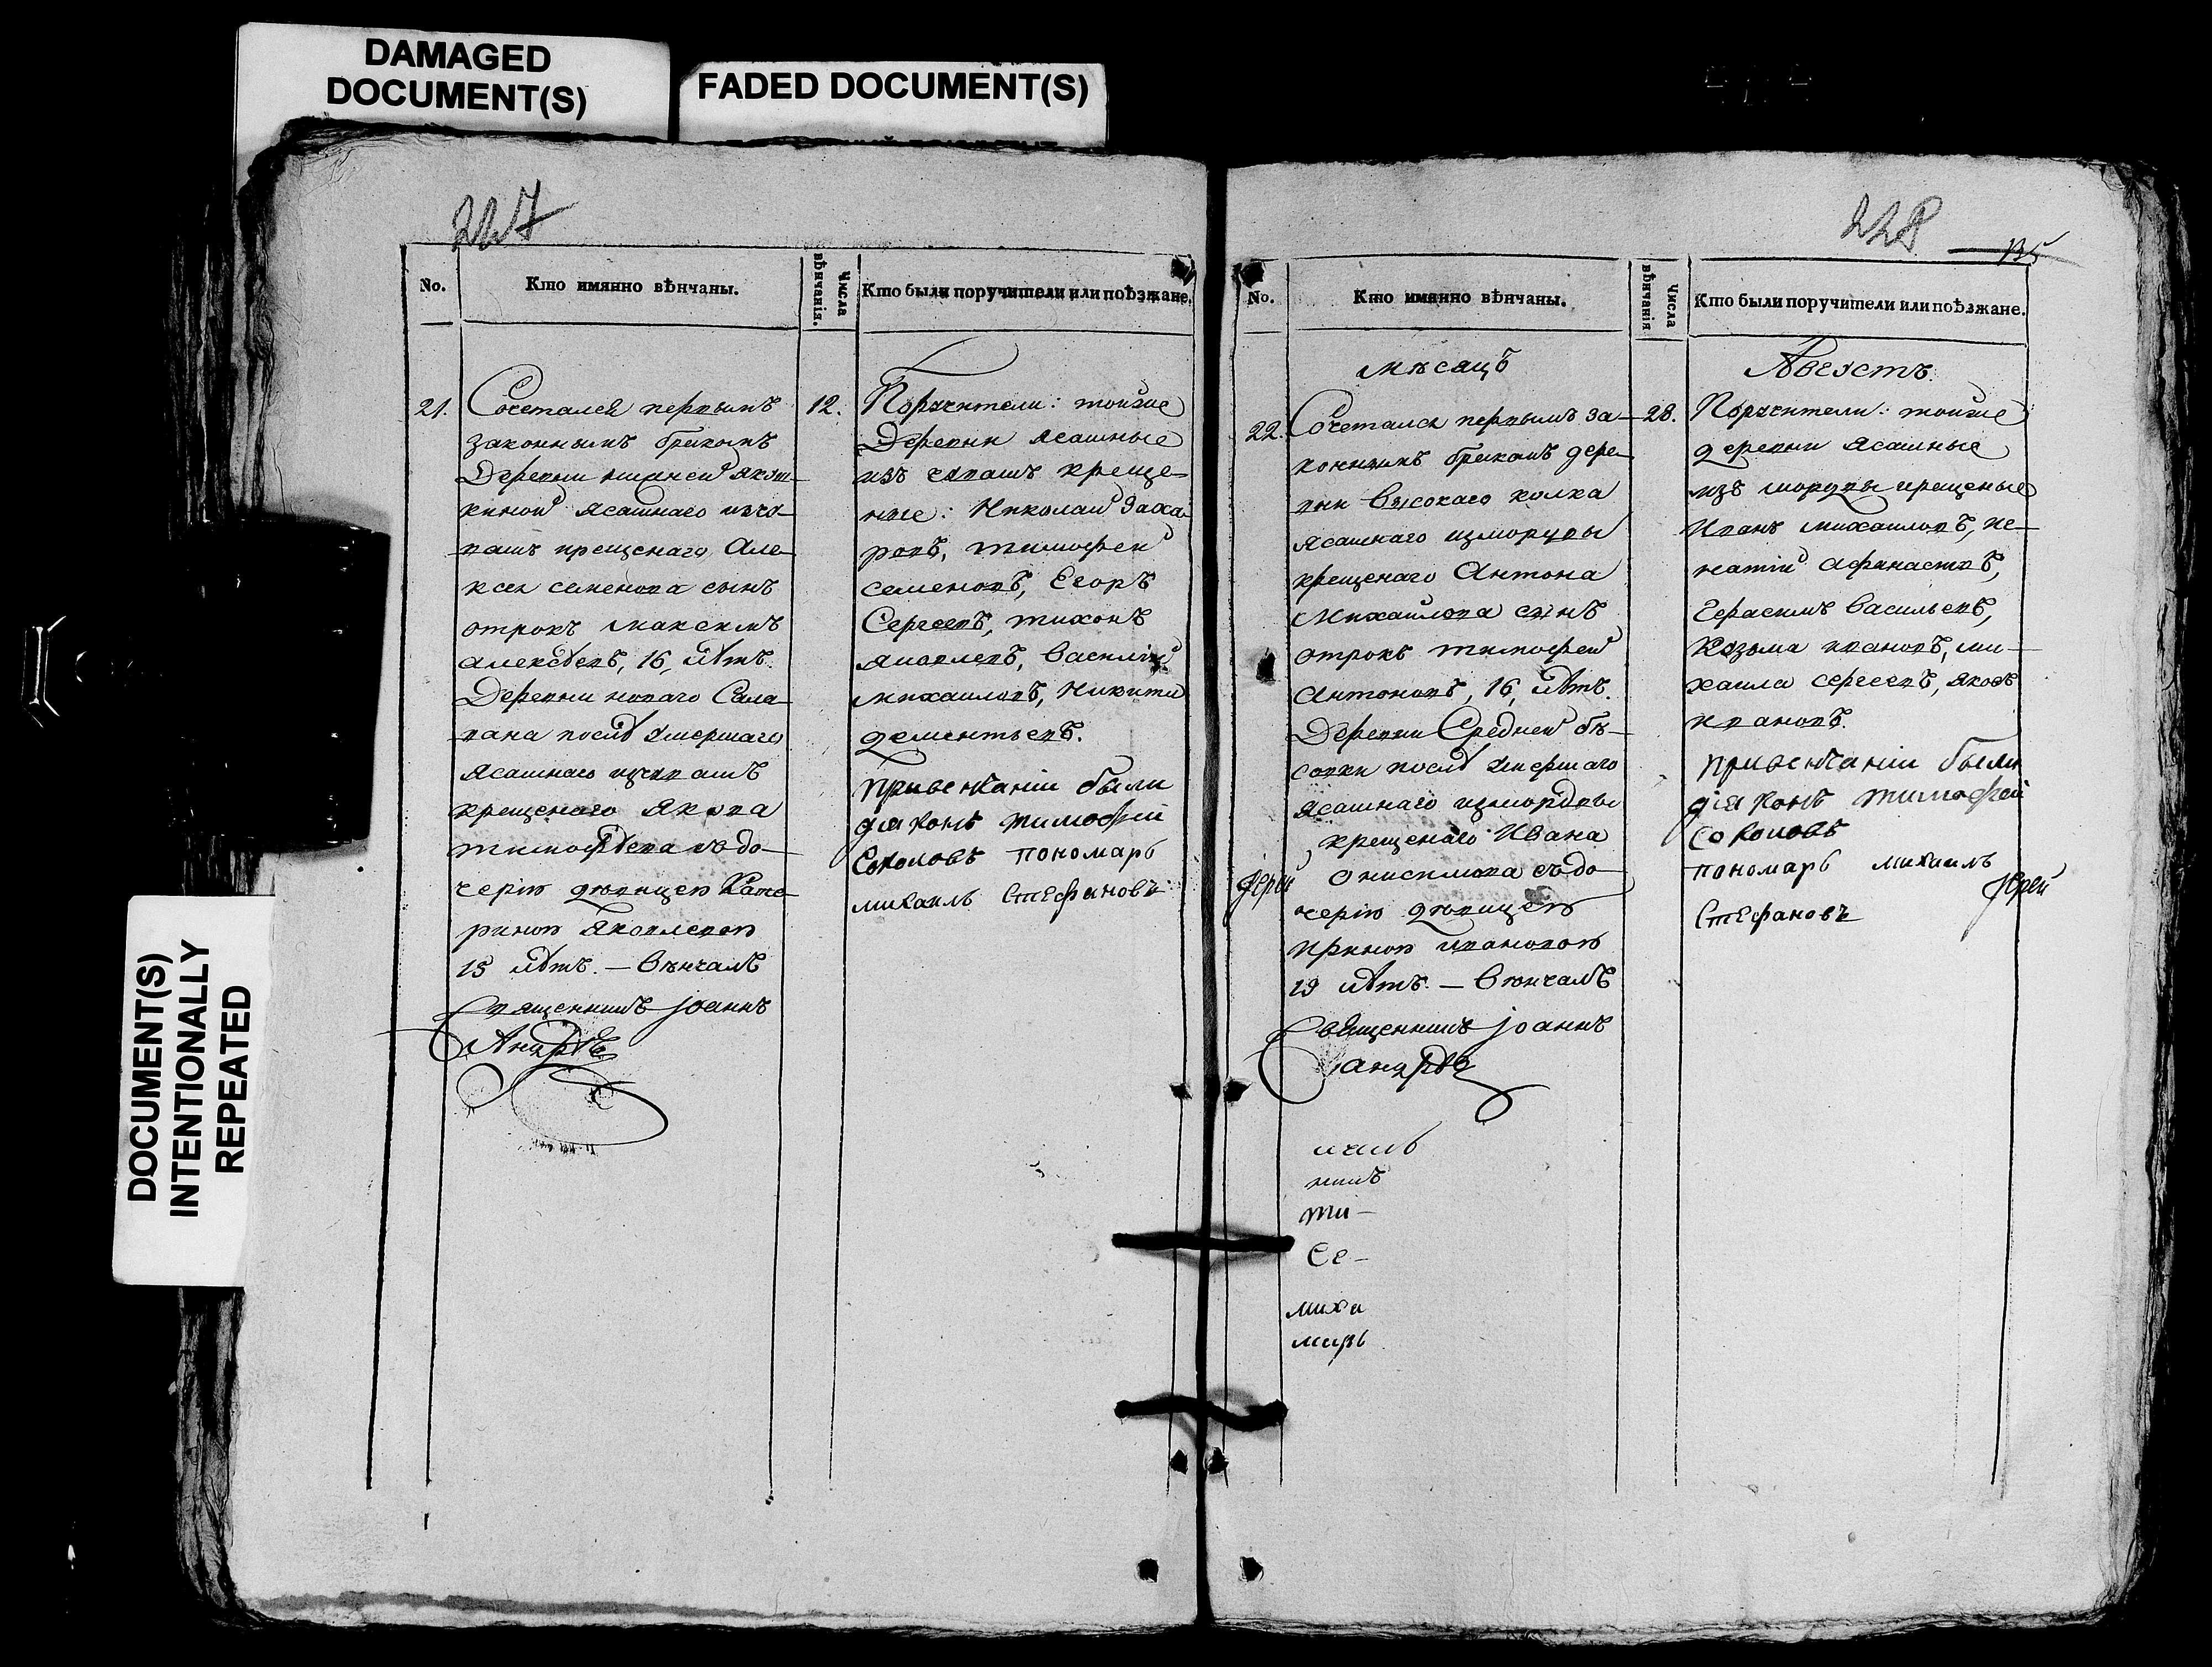 DAMAGED
DOCUMENT(S)
FADED DOCUMENT(S)
DOCUMENT(S)
INTENTIONALLY
REPEATED
227
No.
Кто имянно вѣнчаны.
Числа
вѣнчанія.
Кто были поручители или поѣзжане.
21.
Сочетался первымъ
законнымъ бракомъ
Деревни нижней якуш-
киной ясашнаго изъ чу-
вашъ крещенаго Але-
ксея семенова сынъ
отрокъ максимъ
алексѣевъ, 16, лѣтъ.
Деревни новаго Сала-
вана послѣ умершаго
ясашнаго изчувашъ
крещенаго якова
тимофѣева съ до-
черію дѣвицею Кате-
риною яковлевою
15 лѣтъ. — Вѣнчалъ
Священникъ Јоаннъ
Андрѣевъ
12.
Поручители: тойже
Деревни ясашные
изъ чувашъ креще-
ные: Николай Заха-
ровъ, тимофей
семеновъ, Егоръ
Сергеевъ, тихонъ
яковлевъ, василий
михайловъ, Никита
дементьевъ.
привенчаніи были
діаконъ тимофей
Соколовъ пономарь
михаилъ Стефановъ
Јерей
228
135
No.
Кто имянно вѣнчаны.
Числа
вѣнчанія
Кто были поручители или поѣзжане.
мѣсяцъ
Августъ.
22.
Сочетался первымъ за-
коннымъ бракомъ дере-
вни высокаго колка
ясашнаго измордвы
крещенаго Антона
Михайлова сынъ
отрокъ тимофей
антоновъ, 16, лѣтъ.
Деревни Средней бѣ-
совки послѣ умершаго
ясашнаго измордвы
крещенаго Ивана
онисимова съ до-
черію дѣвицею
ириною ивановою
19 лѣтъ. — Вѣнчалъ
Священникъ Јоаннъ
андрѣевъ
28.
Поручители: тойже
деревни ясашные
изъ мордвы крещеные
Иванъ михайловъ, иг-
натій афанасьевъ,
Герасимъ васильевъ,
Козьма ивановъ, ми-
хаила сергеевъ, яковъ
ивановъ.
привенчаніи были
діаконъ тимофей
Соколовъ
пономарь михаилъ
Стефановъ
Јерей
никъ
ти-
Се-
миха
марь